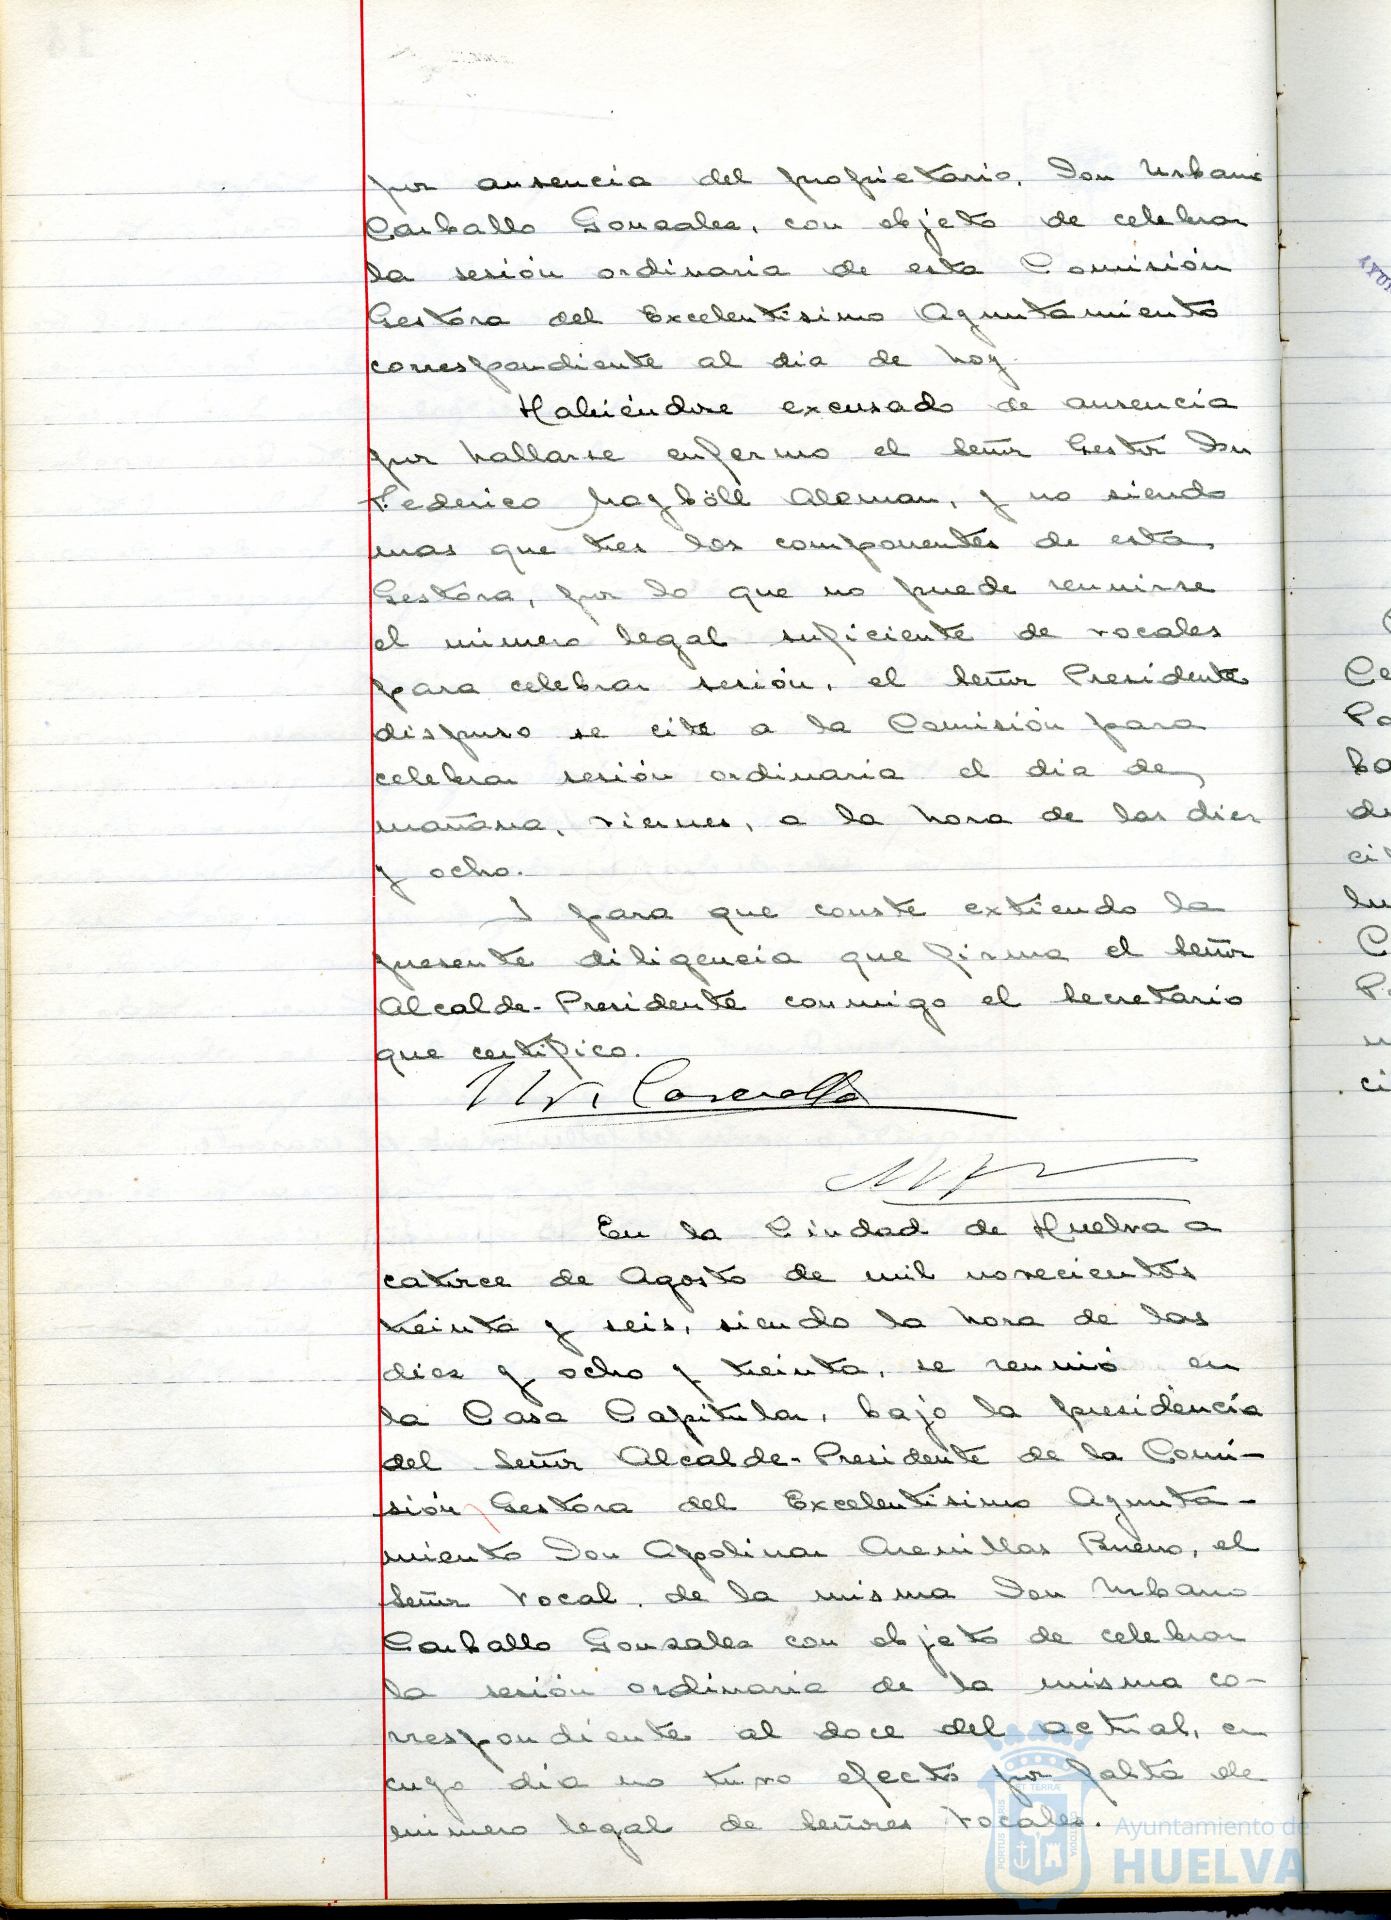 por ausencia del propietario, Don Urbano
Carballo Gonzalez, con objeto de celebrar
la sesión ordinaria de esta Comisión
Gestora del Excelentísimo Ayuntamiento
correspondiente al día de hoy.
Habiéndose excusado de ausencia
por hallarse enfermo el Señor Gestor Don
Federico Mayböll Aleman, y no siendo
mas que tres los componentes de esta
Gestora, por lo que no puede reunirse
el número legal suficiente de vocales
para celebrar sesión, el Señor Presidente
dispuso se cite a la Comisión para
celebrar sesión ordinaria el día de
mañana, viernes, a la hora de las diez
y ocho.
Y para que conste extiendo la
presente diligencia que firma el Señor
Alcalde-Presidente conmigo el Secretario
que certifico.
En la Ciudad de Huelva a
catorce de Agosto de mil novecientos
treinta y seis, siendo la hora de las
diez y ocho y treinta, se reunió en
la Casa Capitular, bajo la presidencia
del Señor Alcalde-Presidente de la Comi-
sión Gestora del Excelentísimo Ayunta-
miento Don Apolinar Arenillas Bueno, el
Señor Vocal de la misma Don Urbano
Carballo Gonzalez con objeto de celebrar
la sesión ordinaria de la misma co-
rrespondiente al doce del actual, en
cuyo día no tuvo efecto por falta de
número legal de Señores Vocales.
Ayuntamiento de
HUELVA